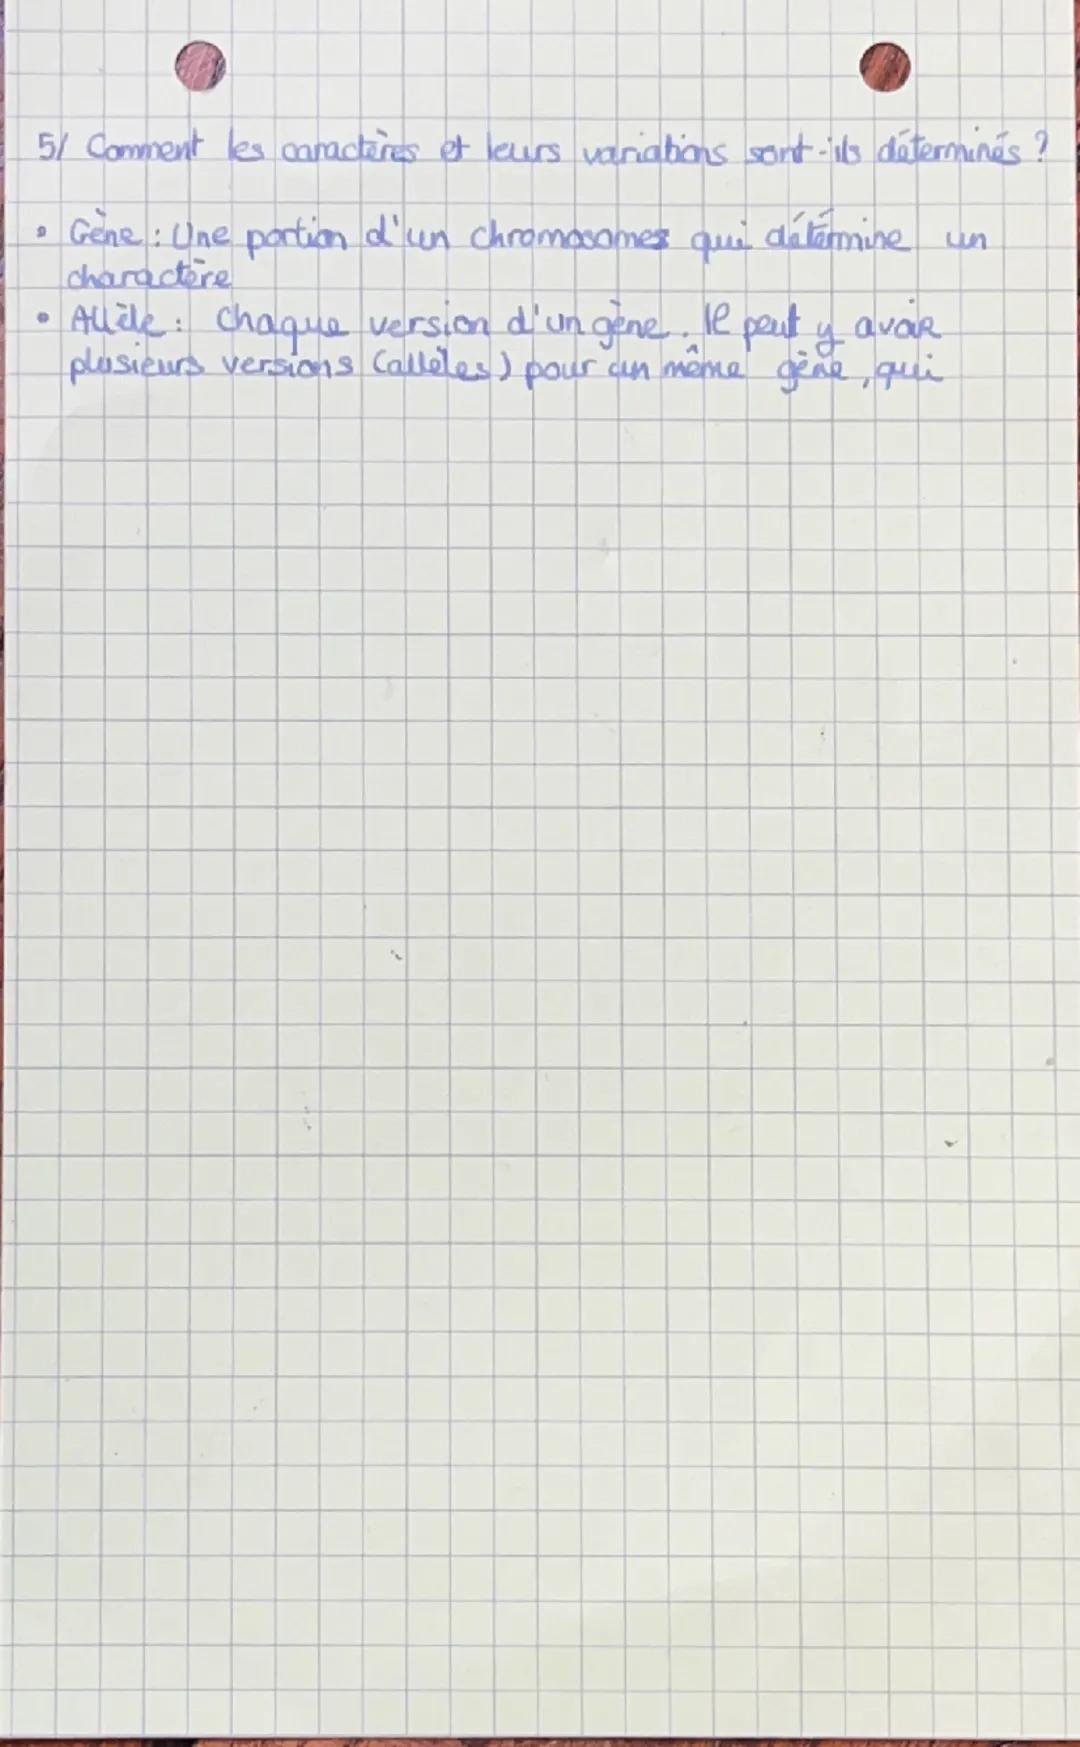 5/ Comment les caractères et leurs variations sont-ils déterminés ?
• Gène : Une portion d'un chromosomes qui détérmine un
charactère
• Allèle : Chaque version d'un gène. Il peut y avoir
plusieurs versions (allèles) pour un même gène, qui